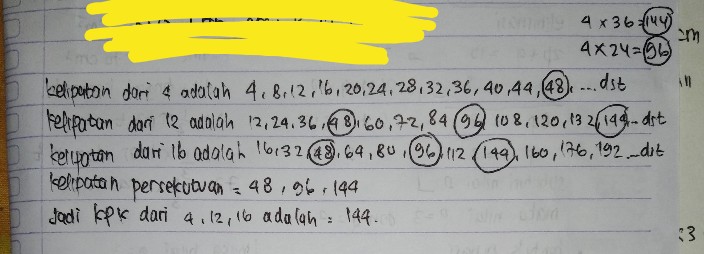 4 x 36 = 144
4 x 24 = 96
cm
kelipatan dari 4 adalah 4, 8, 12, 16, 20, 24, 28, 32, 36, 40, 44, 48, ... dst
kelipatan dari 12 adalah 12, 24, 36, 48, 60, 72, 84, 96, 108, 120, 132, 144 ... dst
kelipatan dari 16 adalah 16, 32, 48, 64, 80, 96, 112, 144, 160, 176, 192 ... dst
kelipatan persekutuan = 48, 96, 144
Jadi KPK dari 4, 12, 16 adalah = 144.